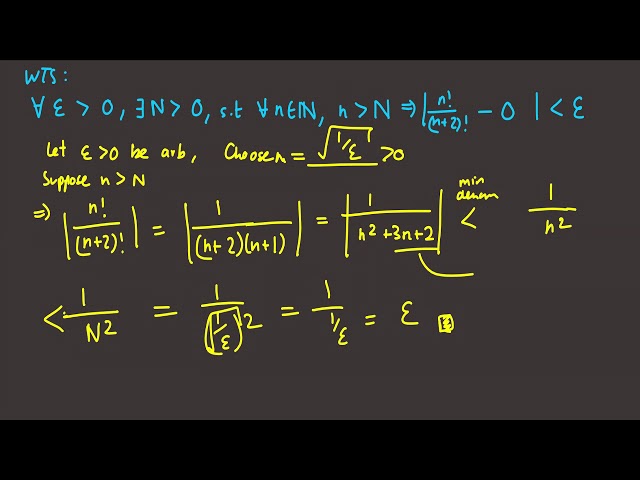 WTS:
∀ ε > 0, ∃ N > 0, s.t ∀ n ∈ ℕ, n > N ⇒ | n!/(n+2)! − 0 | < ε
Let ε > 0 be arb, Choose n = √(1/ε) > 0
Suppose n > N
⇒ | n!/(n+2)! | = | 1/((n+2)(n+1)) | = | 1/(n² + 3n + 2) | < 1/n²
min denom
< 1/N² = 1/(√(1/ε))² = 1/(1/ε) = ε